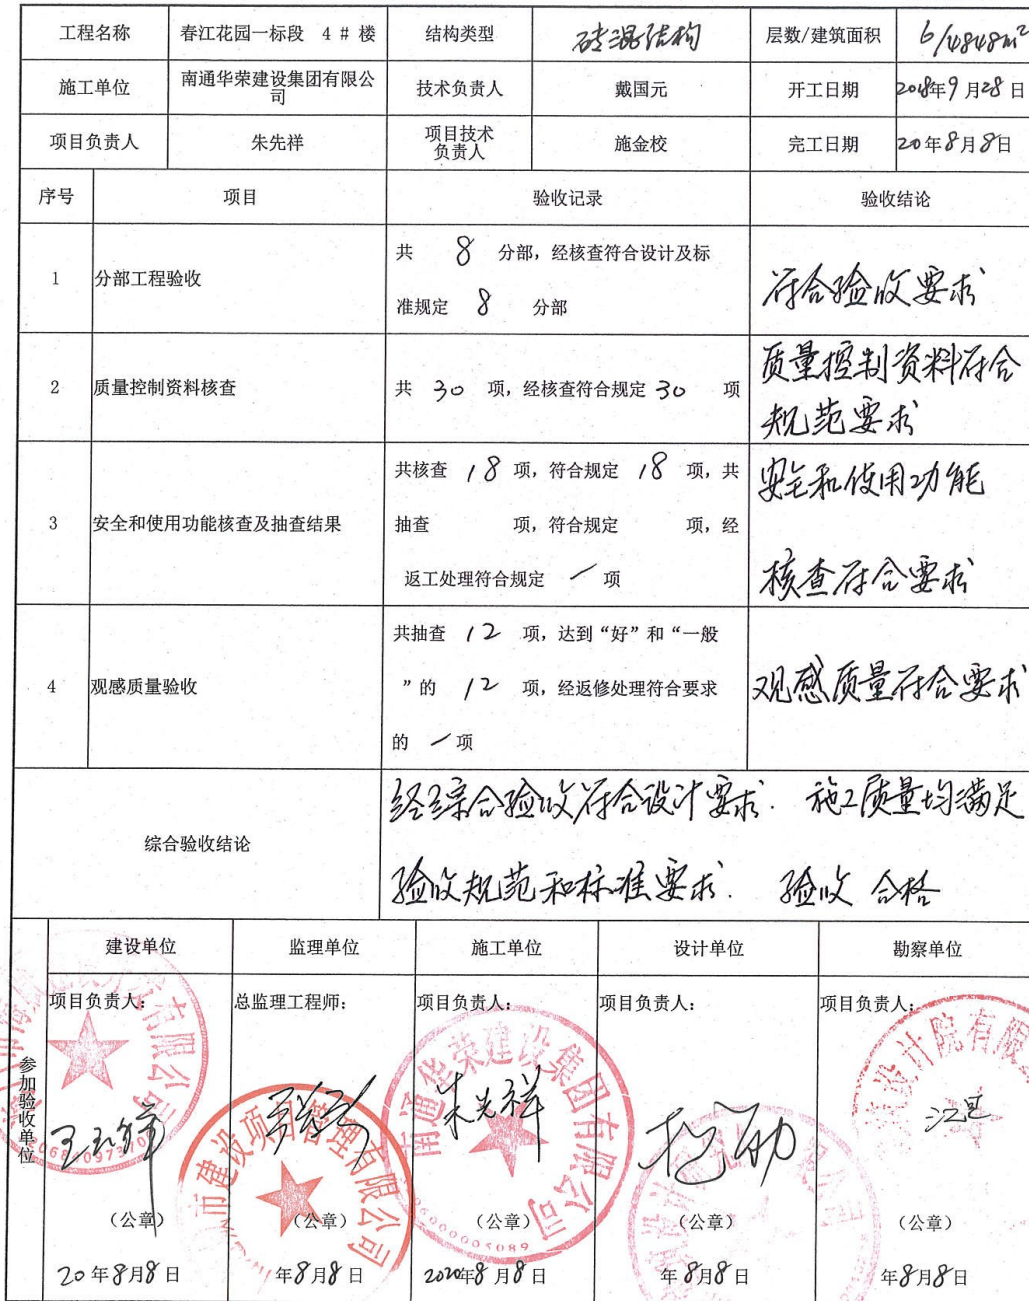 工程名称 春江花园一标段 4 # 楼 结构类型 砖混结构 层数/建筑面积 6/4848m²
施工单位 南通华荣建设集团有限公司 技术负责人 戴国元 开工日期 2018年9月28日
项目负责人 朱先祥 项目技术负责人 施金校 完工日期 20年8月8日
序号 项目 验收记录 验收结论
1 分部工程验收 共 8 分部，经核查符合设计及标
准规定 8 分部
符合验收要求
2 质量控制资料核查 共 30 项，经核查符合规定 30 项
质量控制资料符合
规范要求
3 安全和使用功能核查及抽查结果
共核查 18 项，符合规定 18 项，共
抽查 项，符合规定 项，经
返工处理符合规定 / 项
安全和使用功能
核查符合要求
4 观感质量验收
共抽查 12 项，达到“好”和“一般
”的 12 项，经返修处理符合要求
的 / 项
观感质量符合要求
综合验收结论
经综合验收符合设计要求. 施工质量均满足
验收规范和标准要求. 验收合格
参加验收单位
建设单位 监理单位 施工单位 设计单位 勘察单位
项目负责人： 总监理工程师： 项目负责人： 项目负责人： 项目负责人：
朱先祥
（公章） （公章） （公章） （公章） （公章）
20年8月8日 年8月8日 2020年8月8日 年8月8日 年8月8日
有限公司
市建设项目管理有限公司
南通华荣建设集团有限公司
设计院有限